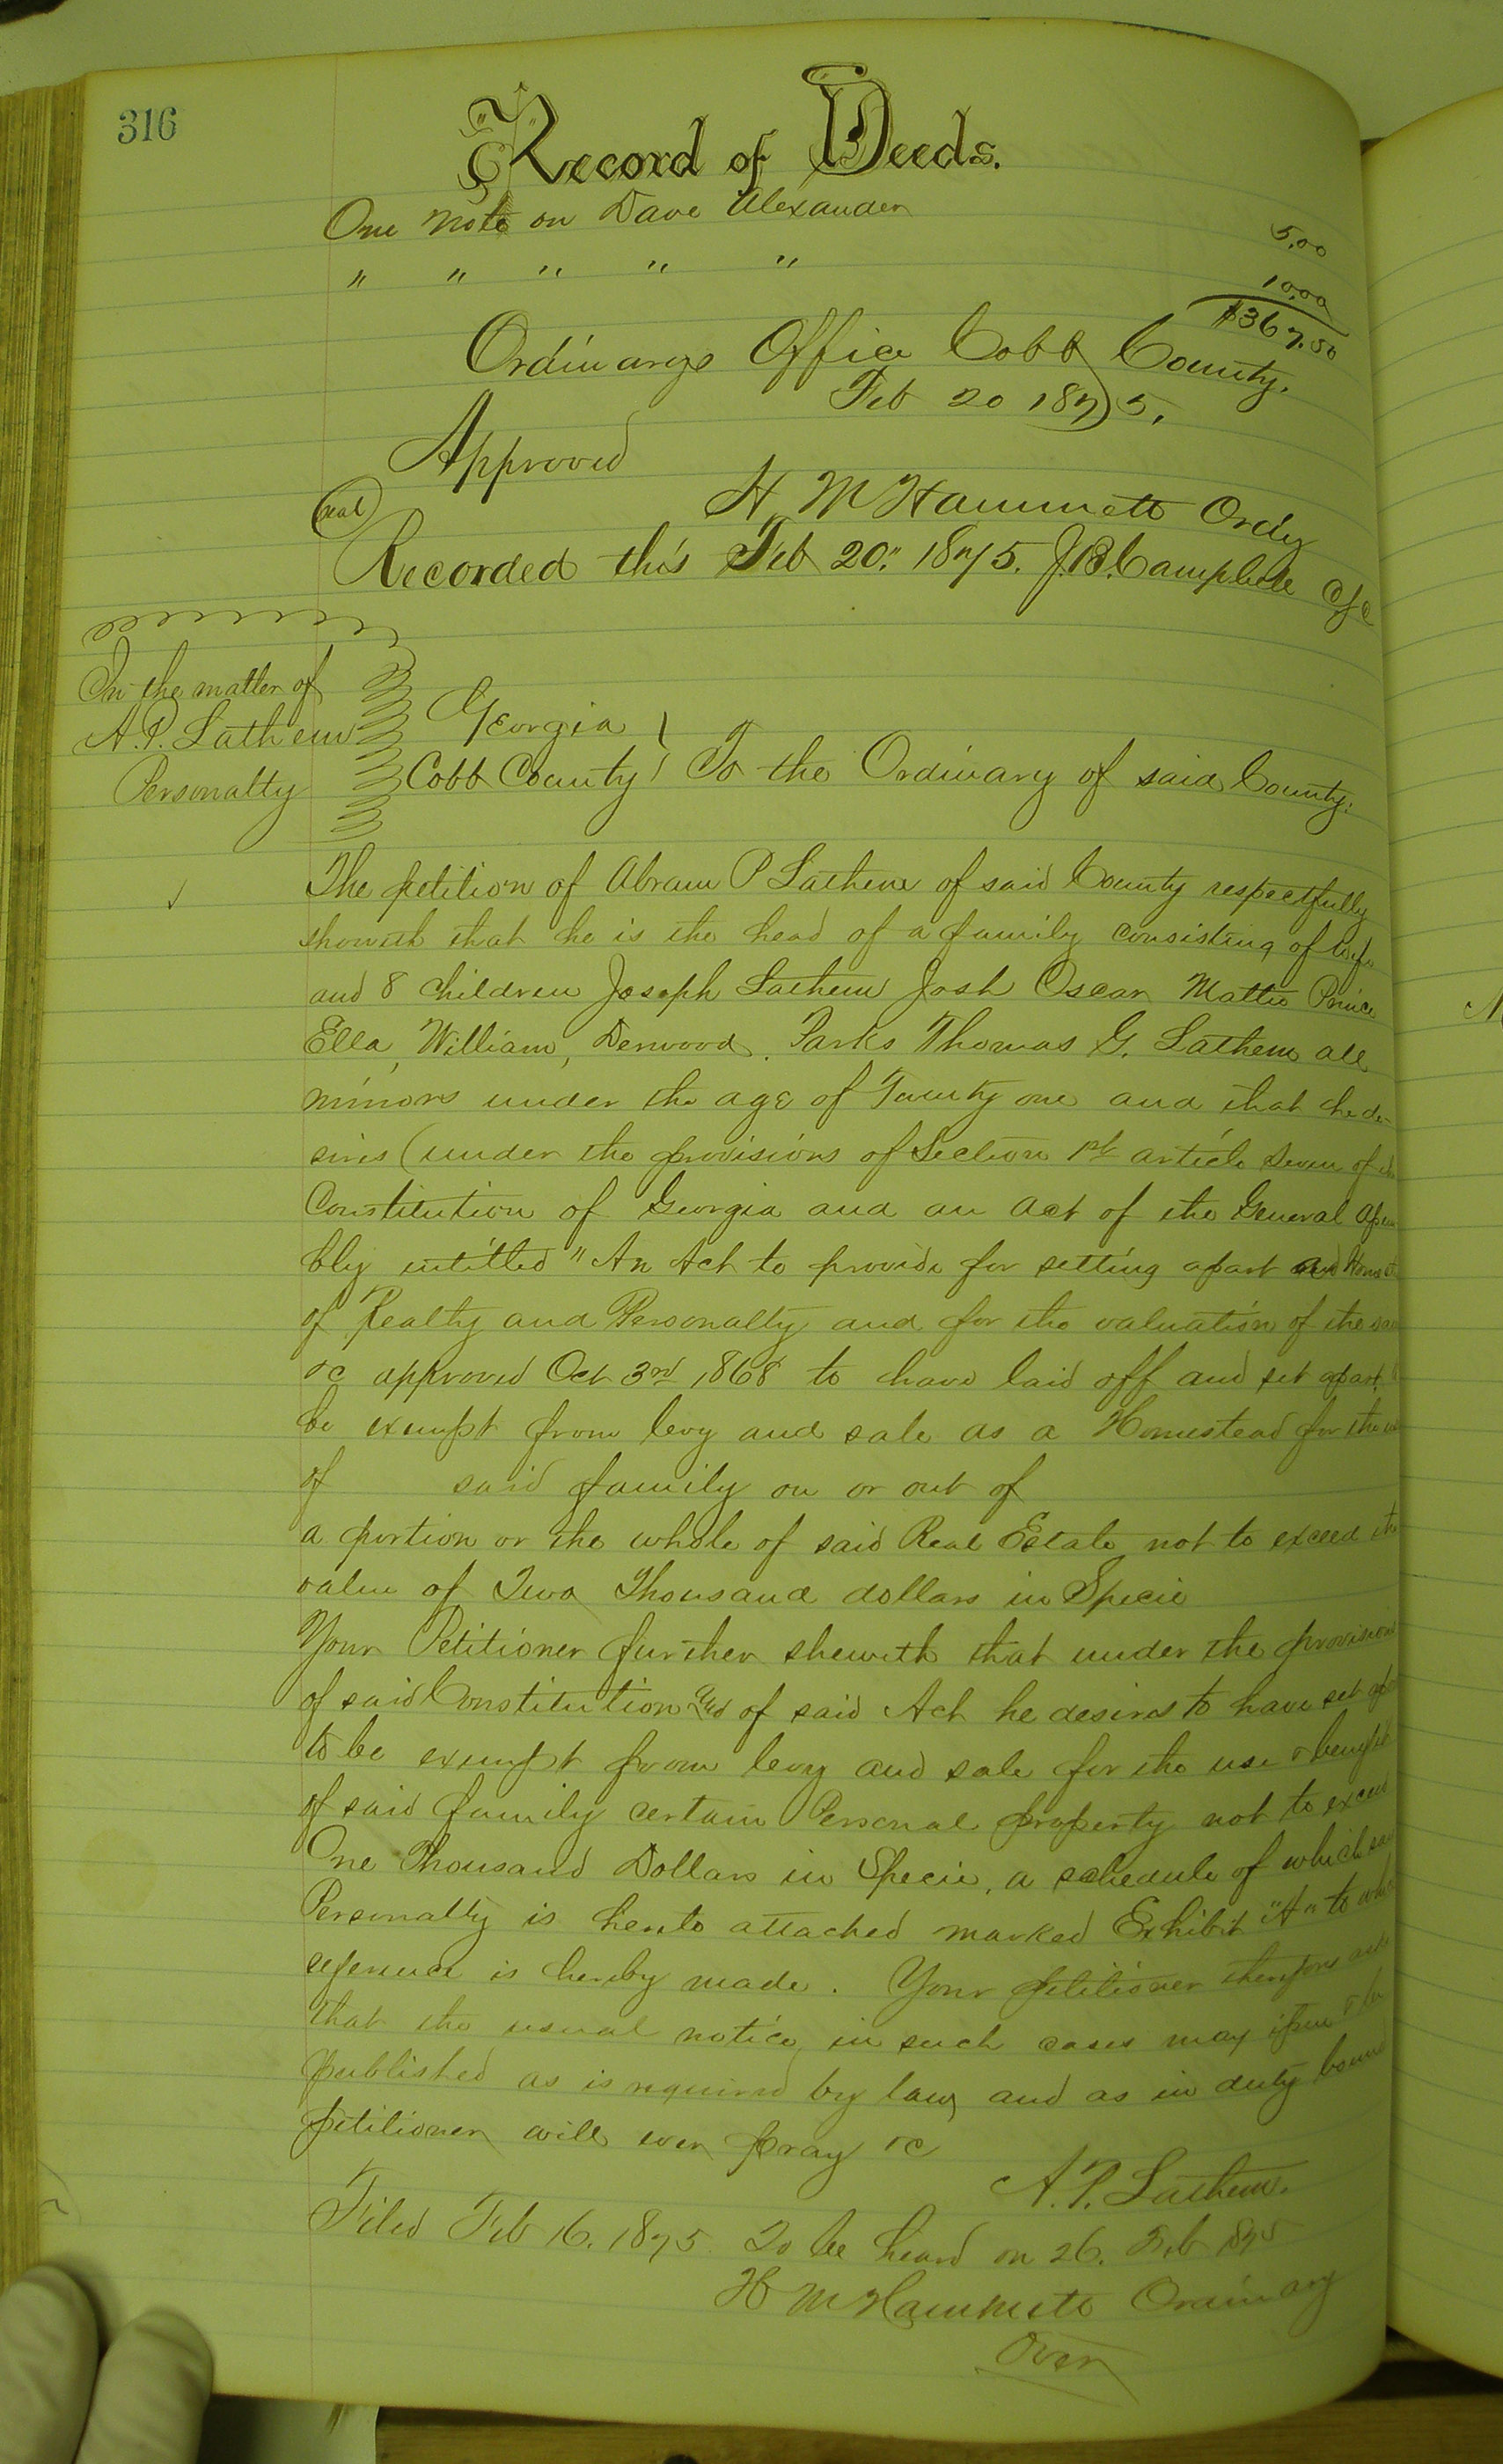 316
Record of Deeds.
One Note on Dave Alexander 5.00
" " " " " 10.00
$367.50
Ordinarys Office Cobb County.
Feb 20 1875.
Approved
H M Hammett Ordy
(seal)
Recorded this Feb 20" 1875. J.B. Campbell CSC
In the matter of
A.P. Lathem
Personalty
Georgia
Cobb County } To the Ordinary of said County:
The petition of Abram P Lathem of said County respectfully
sheweth that he is the head of a family consisting of wife
and 8 children Joseph Lathem Josh Oscar Mattie
Ella, William, Derwood. Parks Thomas G. Lathem all
minors under the age of Twenty one and that he de-
sires (under the provisions of Section 1st article Seven of the
Constitution of Georgia and an act of the General Assem
bly entitled "An Act to provide for setting apart
of Realty and Personalty and for the valuation of the
&c approved Oct 3rd 1868 to have laid off and set apart
be exempt from levy and sale as a Homestead for the use
of said family on or out of
a portion or the whole of said Real Estate not to exceed the
value of Two Thousand dollars in Specie
Your Petitioner further sheweth that under the provisions
of said Constitution And of said Act he desires to have set
to be exempt from levy and sale for the use & benefit
of said family certain Personal property not to exceed
One Thousand Dollars in Specie, a schedule of which
Personalty is hereto attached marked Exhibit "A" to
reference is hereby made. Your petitioner therefore asks
that the usual notice in such cases may issue & be
published as is required by law, and as in duty bound
petitioner will ever pray &c
A.P. Lathem.
Filed Feb 16. 1875. To be heard on 26. Feb 1875
H M Hammett Ordinary
Over